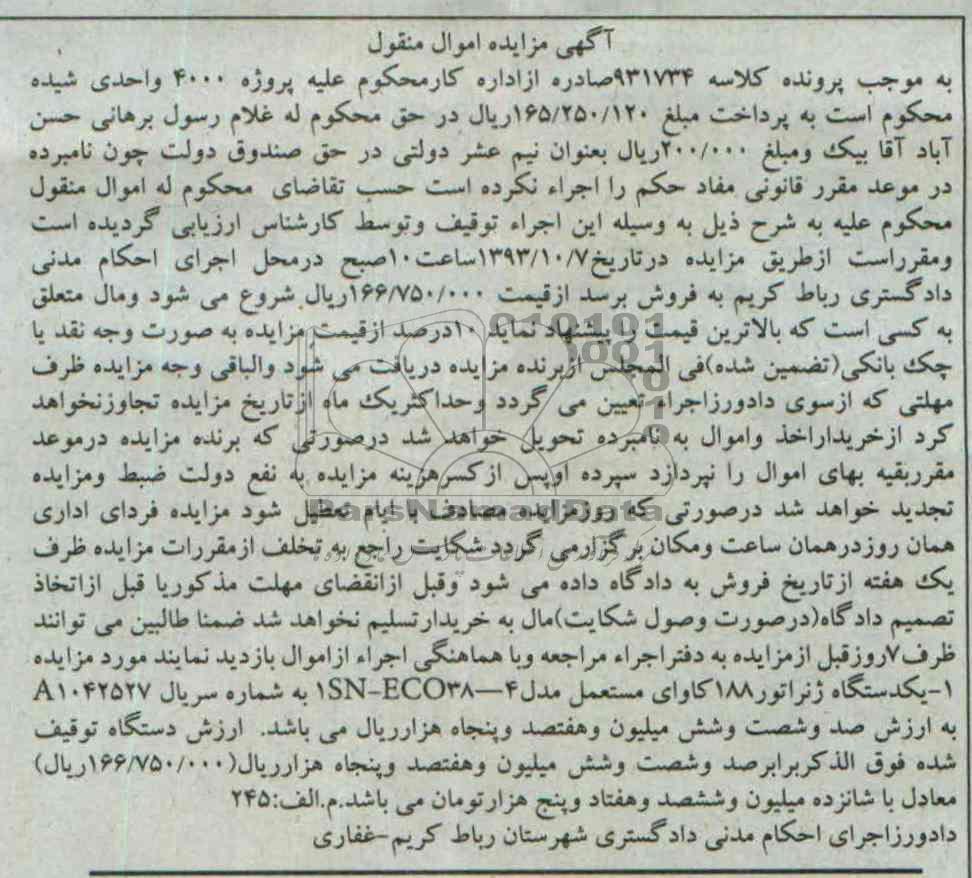 آگهی مزایده اموال منقول
به موجب پرونده کلاسه ۹۳۱۷۳۴صادره ازاداره کارمحکوم علیه پروژه ۴۰۰۰ واحدی شیده
محکوم است به پرداخت مبلغ ۱۶۵/۲۵۰/۱۲۰ریال در حق محکوم له غلام رسول برهانی حسن
آباد آقا بیک ومبلغ ۲۰۰/۰۰۰ریال بعنوان نیم عشر دولتی در حق صندوق دولت چون نامبرده
در موعد مقرر قانونی مفاد حکم را اجراء نکرده است حسب تقاضای محکوم له اموال منقول
محکوم علیه به شرح ذیل به وسیله این اجراء توقیف وتوسط کارشناس ارزیابی گردیده است
ومقرراست ازطریق مزایده درتاریخ۱۳۹۳/۱۰/۷ساعت۱۰صبح درمحل اجرای احکام مدنی
دادگستری رباط کریم به فروش برسد ازقیمت ۱۶۶/۷۵۰/۰۰۰ریال شروع می شود ومال متعلق
به کسی است که بالاترین قیمت را پیشنهاد نماید ۱۰درصد ازقیمت مزایده به صورت وجه نقد یا
چک بانکی(تضمین شده)فی المجلس ازبرنده مزایده دریافت می شود والباقی وجه مزایده ظرف
مهلتی که ازسوی دادورزاجراء تعیین می گردد وحداکثریک ماه ازتاریخ مزایده تجاوزنخواهد
کرد ازخریداراخذ واموال به نامبرده تحویل خواهد شد درصورتی که برنده مزایده درموعد
مقرربقیه بهای اموال را نپردازد سپرده اوپس ازکسرهزینه مزایده به نفع دولت ضبط ومزایده
تجدید خواهد شد درصورتی که روزمزایده مصادف با ایام تعطیل شود مزایده فردای اداری
همان روزدرهمان ساعت ومکان برگزارمی گردد شکایت راجع به تخلف ازمقررات مزایده ظرف
یک هفته ازتاریخ فروش به دادگاه داده می شود وقبل ازانقضای مهلت مذکوریا قبل ازاتخاذ
تصمیم دادگاه(درصورت وصول شکایت)مال به خریدارتسلیم نخواهد شد ضمنا طالبین می توانند
ظرف۷روزقبل ازمزایده به دفتراجراء مراجعه وبا هماهنگی اجراء ازاموال بازدید نمایند مورد مزایده
۱-یکدستگاه ژنراتور۱۸۸کاوای مستعمل مدل۴—۱SN-ECO۳۸ به شماره سریال A۱۰۴۲۵۲۷
به ارزش صد وشصت وشش میلیون وهفتصد وپنجاه هزارریال می باشد. ارزش دستگاه توقیف
شده فوق الذکربرابرصد وشصت وشش میلیون وهفتصد وپنجاه هزارریال(۱۶۶/۷۵۰/۰۰۰ریال)
معادل با شانزده میلیون وششصد وهفتاد وپنج هزارتومان می باشد.م.الف:۲۴۵
دادورزاجرای احکام مدنی دادگستری شهرستان رباط کریم-غفاری
ParsNamadData